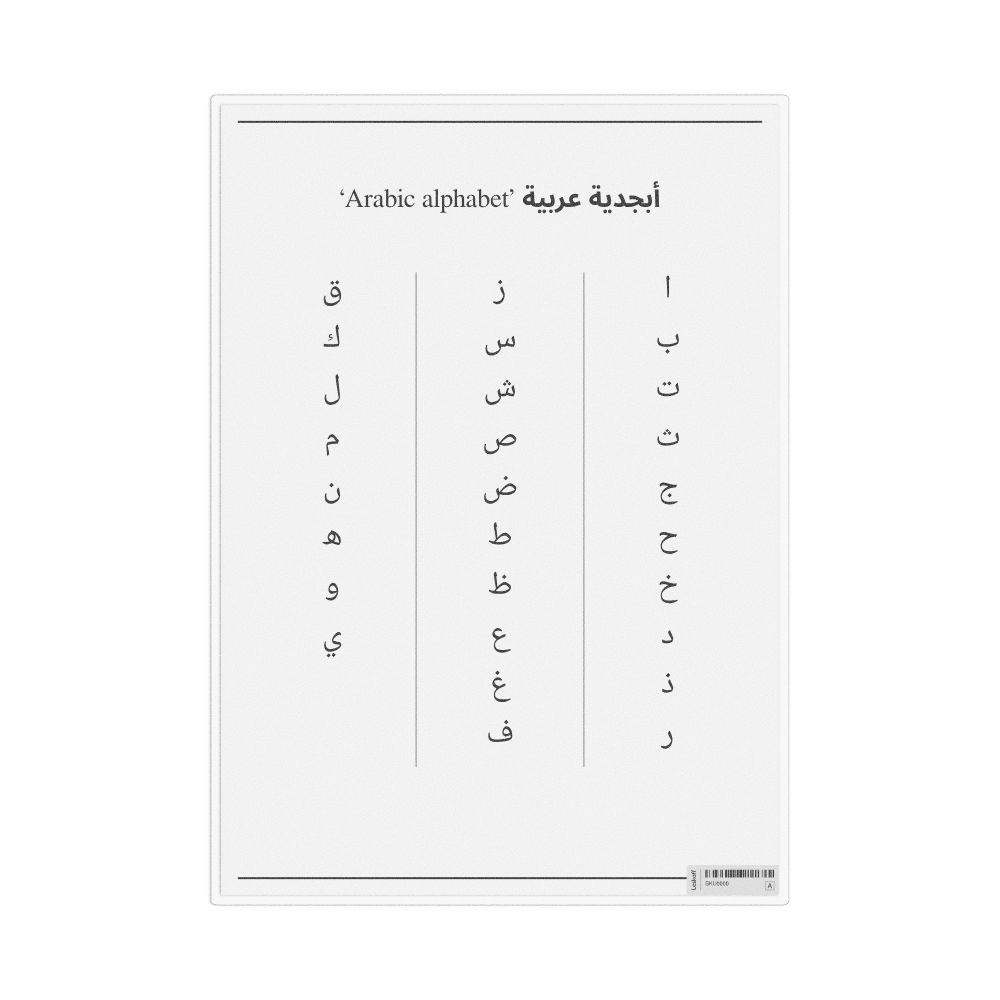 أبجدية عربية ‘Arabic alphabet’
ا
ب
ت
ث
ج
ح
خ
د
ذ
ر
ز
س
ش
ص
ض
ط
ظ
ع
غ
ف
ق
ك
ل
م
ن
ه
و
ي
Leskoff
SKU0000
A